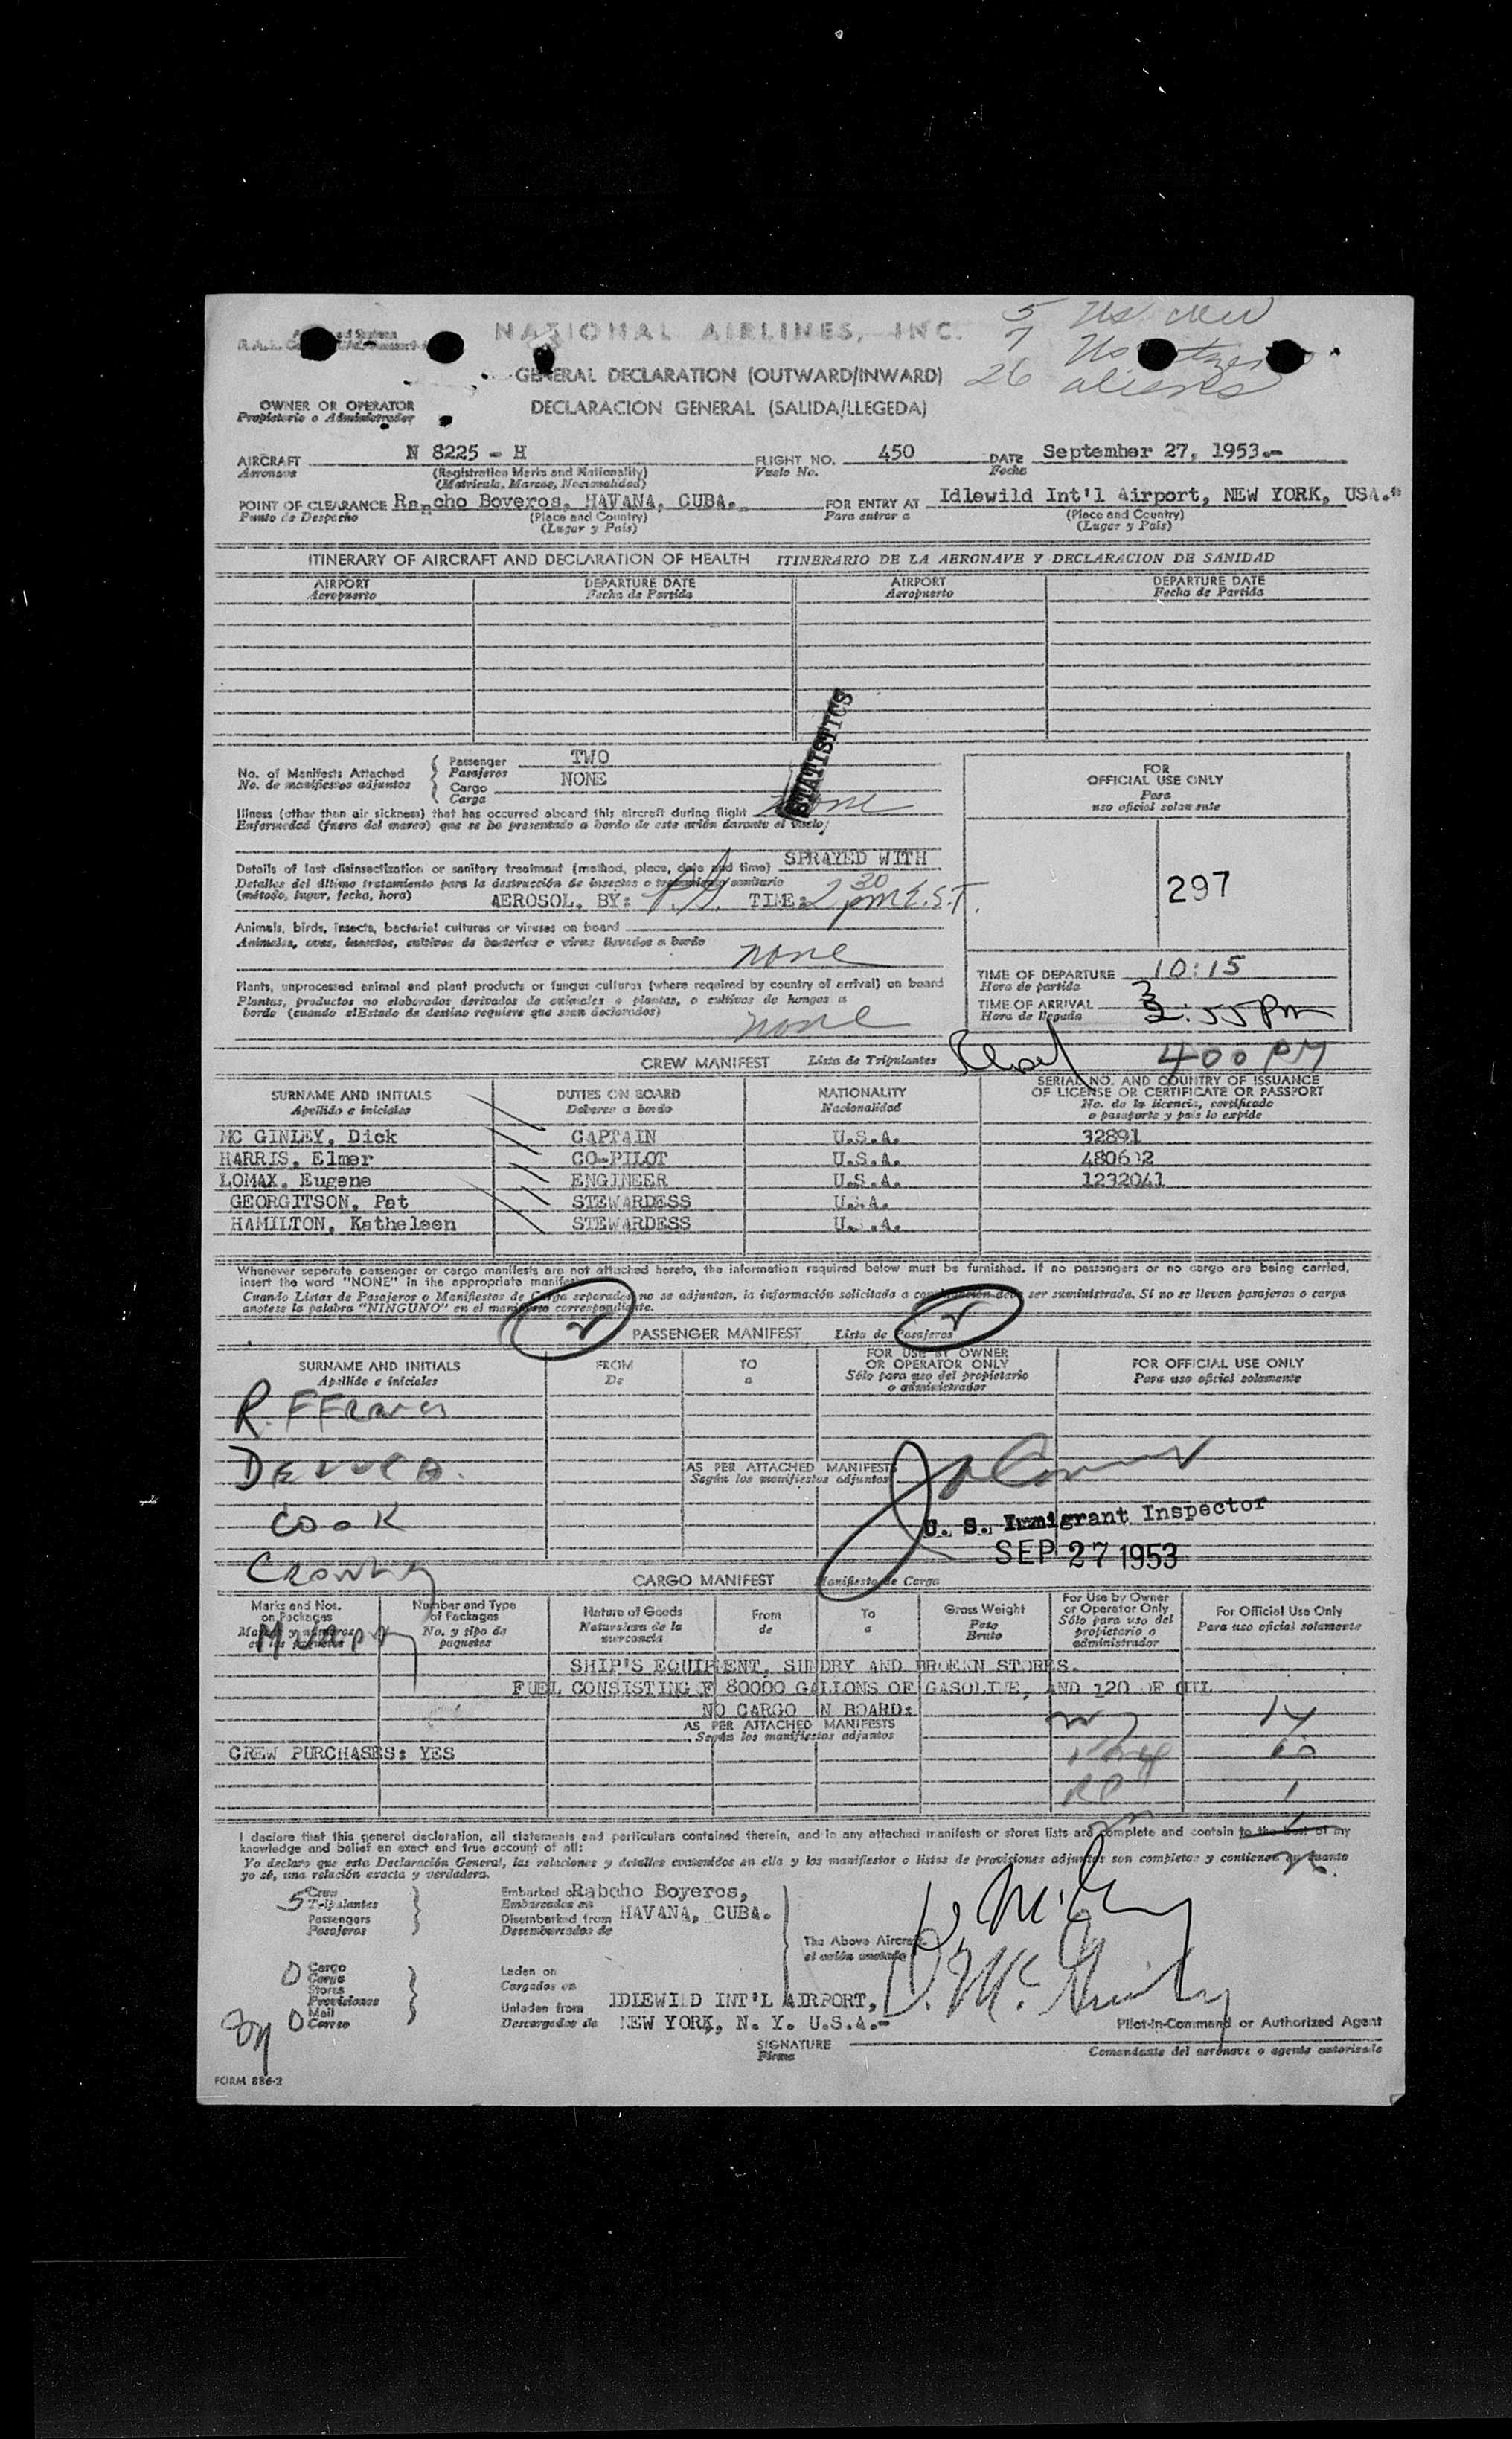 NATIONAL AIRLINES, INC.
5 US crew
7 US
26 aliens
GENERAL DECLARATION (OUTWARD/INWARD)
DECLARACION GENERAL (SALIDA/LLEGEDA)
OWNER OR OPERATOR
Propietario o Administrador
AIRCRAFT N 8225 - H FLIGHT NO. 450 DATE September 27, 1953.-
Aeronave (Registration Marks and Nationality) Vuelo No. Fecha
(Matricula, Marcas, Nacionalidad)
POINT OF CLEARANCE Rancho Boyeros, HAVANA, CUBA. FOR ENTRY AT Idlewild Int'l Airport, NEW YORK, USA.
Punto de Despacho (Place and Country) Para entrar a (Place and Country)
(Lugar y País) (Lugar y País)
ITINERARY OF AIRCRAFT AND DECLARATION OF HEALTH ITINERARIO DE LA AERONAVE Y DECLARACION DE SANIDAD
AIRPORT DEPARTURE DATE AIRPORT DEPARTURE DATE
Aeropuerto Fecha de Partida Aeropuerto Fecha de Partida
STATISTICS
No. of Manifests Attached Passenger TWO
No. de manifiestos adjuntos Pasajeros
Cargo NONE
Carga
Illness (other than air sickness) that has occurred aboard this aircraft during flight none
Enfermedad (fuera del mareo) que se ha presentado a bordo de este avión durante el vuelo:
Details of last disinsectization or sanitary treatment (method, place, date and time) SPRAYED WITH
Detalles del último tratamiento para la destrucción de insectos o tratamiento sanitario
(método, lugar, fecha, hora) AEROSOL, BY: P.G. TIME: 2 30 pm E.S.T.
Animals, birds, insects, bacterial cultures or viruses on board
Animales, aves, insectos, cultivos de bacterias o virus llevados a bordo
none
Plants, unprocessed animal and plant products or fungus cultures (where required by country of arrival) on board
Plantas, productos no elaborados derivados de animales o plantas, o cultivos de hongos a
bordo (cuando elEstado de destino requiere que sean declarados)
none
FOR
OFFICIAL USE ONLY
Para
uso oficial solamente
297
TIME OF DEPARTURE 10:15
Hora de partida
TIME OF ARRIVAL 3:55 PM
Hora de llegada
400 PM
CREW MANIFEST Lista de Tripulantes
SURNAME AND INITIALS DUTIES ON BOARD NATIONALITY SERIAL NO. AND COUNTRY OF ISSUANCE
OF LICENSE OR CERTIFICATE OR PASSPORT
Apellido e iniciales Deberes a bordo Nacionalidad No. de la licencia, certificado
o pasaporte y país lo expide
MC GINLEY, Dick CAPTAIN U.S.A. 32891
HARRIS, Elmer CO-PILOT U.S.A. 480602
LOMAX, Eugene ENGINEER U.S.A. 1232041
GEORGITSON, Pat STEWARDESS U.S.A.
HAMILTON, Katheleen STEWARDESS U.S.A.
Whenever seperate passenger or cargo manifests are not attached hereto, the information required below must be furnished. If no passengers or no cargo are being carried,
insert the word "NONE" in the appropriate manifest.
Cuando Listas de Pasajeros o Manifiestos de Carga separados no se adjuntan, la información solicitada a continuación debe ser suministrada. Si no se lleven pasajeros o carga
anotese la palabra "NINGUNO" en el manifiesto correspondiente.
PASSENGER MANIFEST Lista de Pasajeros
SURNAME AND INITIALS FROM TO FOR USE BY OWNER FOR OFFICIAL USE ONLY
OR OPERATOR ONLY
Apellido e iniciales De a Sólo para uso del propietario Para uso oficial solamente
o administrador
DeLuca
AS PER ATTACHED MANIFESTS
Según los manifiestos adjuntos
Cook
U. S. Immigrant Inspector
SEP 27 1953
Crowley
CARGO MANIFEST Manifiesto de Carga
Marks and Nos. Number and Type Nature of Goods From To Gross Weight For Use by Owner For Official Use Only
on Packages of Packages Naturaleza de la de a Peso or Operator Only Para uso oficial solamente
Marcas y números No. y tipo de mercancía Bruto Sólo para uso del
en los paquetes paquetes propietario o
administrador
Murphy
SHIP'S EQUIPMENT, SUNDRY AND BROEKN STORES.
FUEL CONSISTING F 80000 GALLONS OF GASOLINE, AND 120 OF OIL
NO CARGO N BOARD:
AS PER ATTACHED MANIFESTS
Según los manifiestos adjuntos
14
CREW PURCHASES: YES
I declare that this general declaration, all statements and particulars contained therein, and in any attached manifests or stores lists are complete and contain to the best of my
knowledge and belief an exact and true account of all:
Yo declaro que esta Declaración General, las relaciones y detalles contenidos en ella y los manifiestos o listas de provisiones adjuntos son completos y contienen en cuanto
yo sé, una relación exacta y verdadera.
5 Crew Embarked on Rabcho Boyeros,
Tripulantes Embarcados en
Passengers Disembarked from HAVANA, CUBA.
Pasajeros Desembarcados de
The Above Aircraft
el avión anotado
0 Cargo Laden on
Carga Cargados en
Stores
Provisiones Unladen from IDLEWILD INT'L AIRPORT,
0 Mail Descargados de NEW YORK, N. Y. U.S.A.-
Correo
D. McGinley
Pilot-in-Command or Authorized Agent
SIGNATURE
Firma
Comandante del aeronave o agente autorizado
FORM 886-2